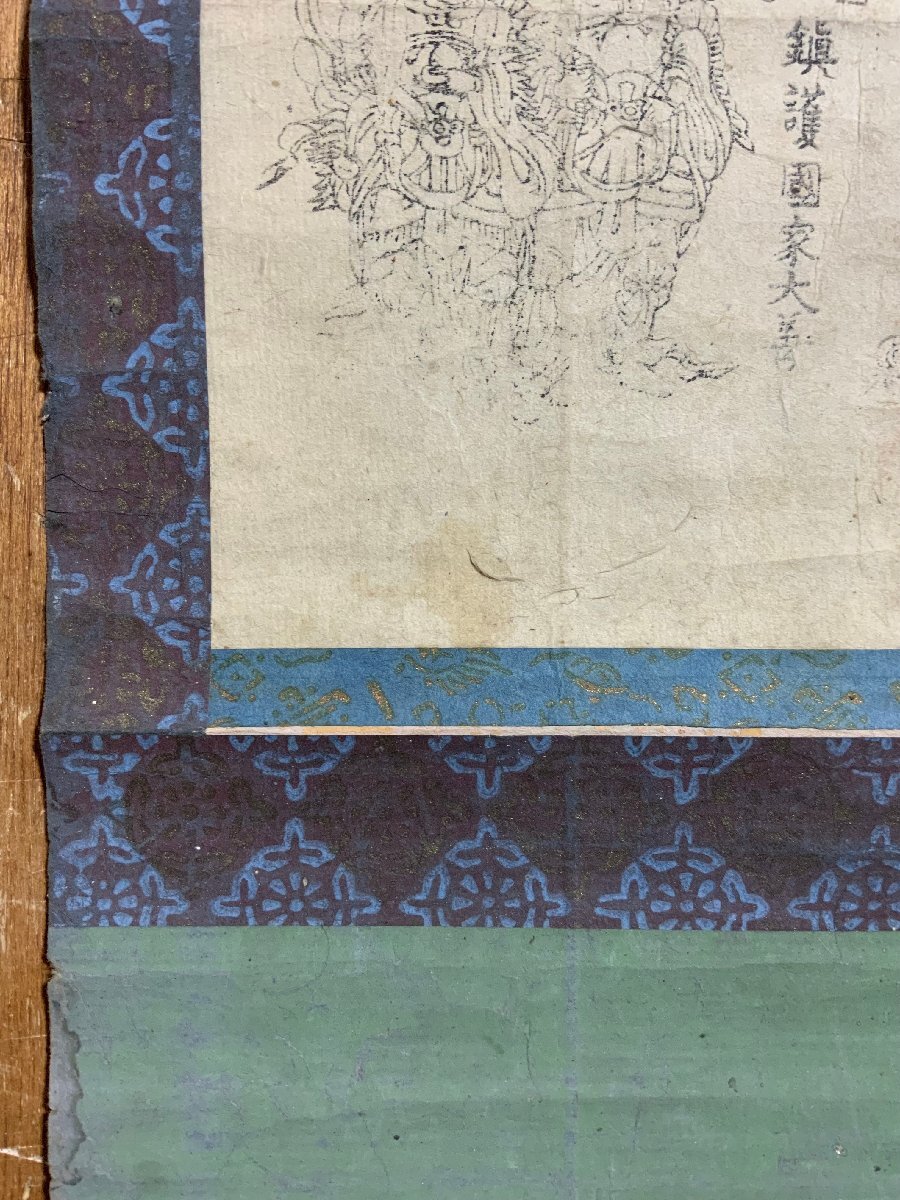 鎮護國家大